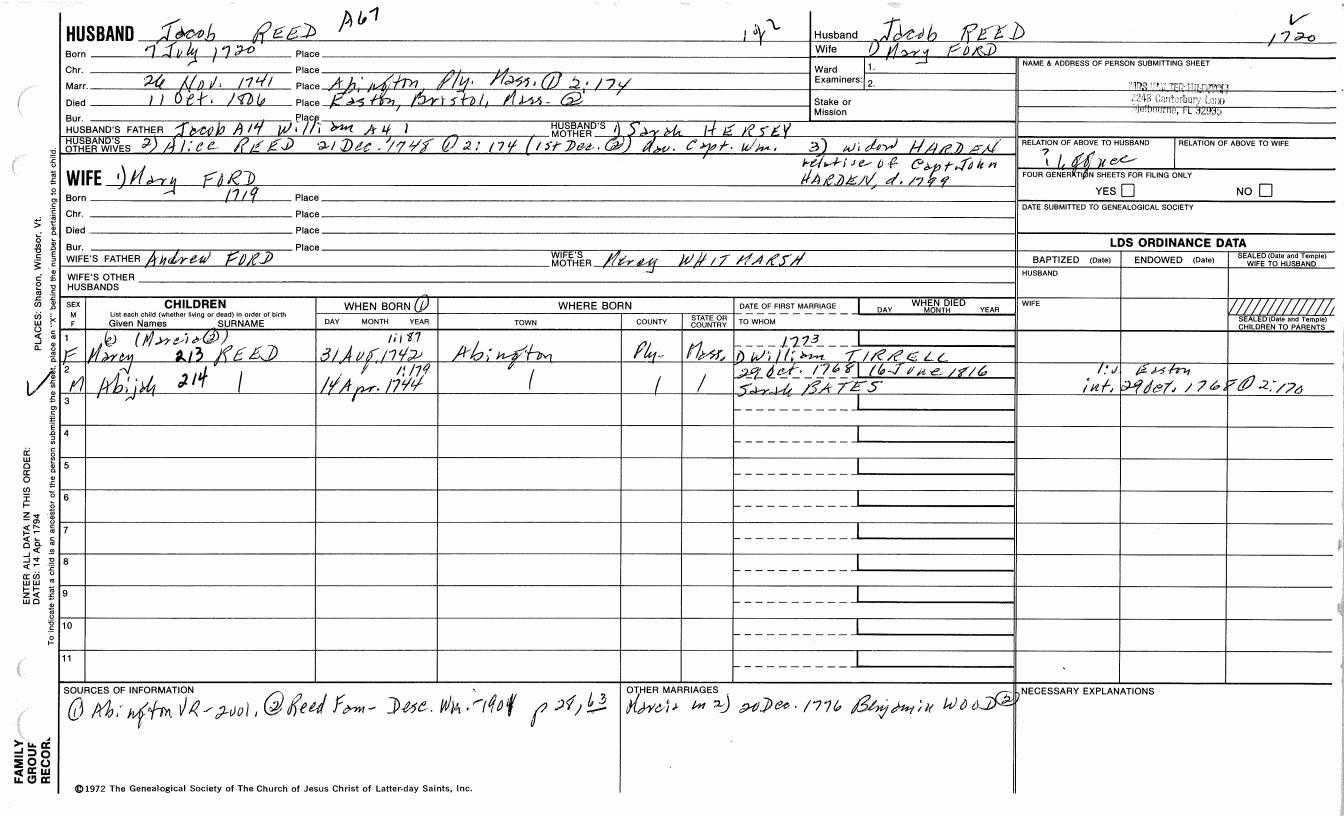 A67
HUSBAND Jacob REED 1 of 2
Born 7 July 1720 Place
Chr. Place
Marr. 26 Nov. 1741 Place Abington Ply. Mass. ① 2:174
Died 11 Oct. 1806 Place Easton, Bristol, Mass. ②
Bur. Place
HUSBAND'S FATHER Jacob A14 William A4 1 HUSBAND'S MOTHER 1) Sarah HERSEY
HUSBAND'S OTHER WIVES 2) Alice REED 21 Dec. 1748 ① 2:174 (1st Dec. ②) dau. Capt. Wm. 3) widow HARDEN
relative of Capt. John
HARDEN, d. 1799
WIFE 1) Mary FORD
Born 1719 Place
Chr. Place
Died Place
Bur. Place
WIFE'S FATHER Andrew FORD WIFE'S MOTHER Mercy WHITMARSH
WIFE'S OTHER HUSBANDS
Husband Jacob REED 1720
Wife 1) Mary FORD
Ward 1.
Examiners: 2.
Stake or Mission
NAME & ADDRESS OF PERSON SUBMITTING SHEET
Canterbury Lane
Melbourne, FL 32935
RELATION OF ABOVE TO HUSBAND RELATION OF ABOVE TO WIFE
FOUR GENERATION SHEETS FOR FILING ONLY
YES NO
DATE SUBMITTED TO GENEALOGICAL SOCIETY
LDS ORDINANCE DATA
BAPTIZED (Date) ENDOWED (Date) SEALED (Date and Temple) WIFE TO HUSBAND
HUSBAND
WIFE
SEALED (Date and Temple) CHILDREN TO PARENTS
SEX M F
CHILDREN
List each child (whether living or dead) in order of birth
Given Names SURNAME
WHEN BORN ①
DAY MONTH YEAR
WHERE BORN
TOWN COUNTY STATE OR COUNTRY
DATE OF FIRST MARRIAGE
TO WHOM
WHEN DIED
DAY MONTH YEAR
1 (Marcia ②) 1:187 1773
F Marcy 213 REED 31 Aug. 1742 Abington Ply. Mass. William TIRRELL
2 1:179 29 Oct. 1768 16 June 1816 Easton
M Abijah 214 14 Apr. 1744 Sarah BATES int. 29 Oct. 1768 ① 2:170
3
4
5
6
7
8
9
10
11
SOURCES OF INFORMATION
① Abington VR-2vol, ② Reed Fam- Desc. Wm.-1901 p 28, 63
OTHER MARRIAGES
Marcia m 2) 20 Dec. 1776 Benjamin WOOD ②
NECESSARY EXPLANATIONS
©1972 The Genealogical Society of The Church of Jesus Christ of Latter-day Saints, Inc.
FAMILY GROUP RECOR.
ENTER ALL DATA IN THIS ORDER:
DATES: 14 Apr 1794
PLACES: Sharon, Windsor, Vt.
To indicate that a child is an ancestor of the person submitting the sheet, place an "X" behind the number pertaining to that child.